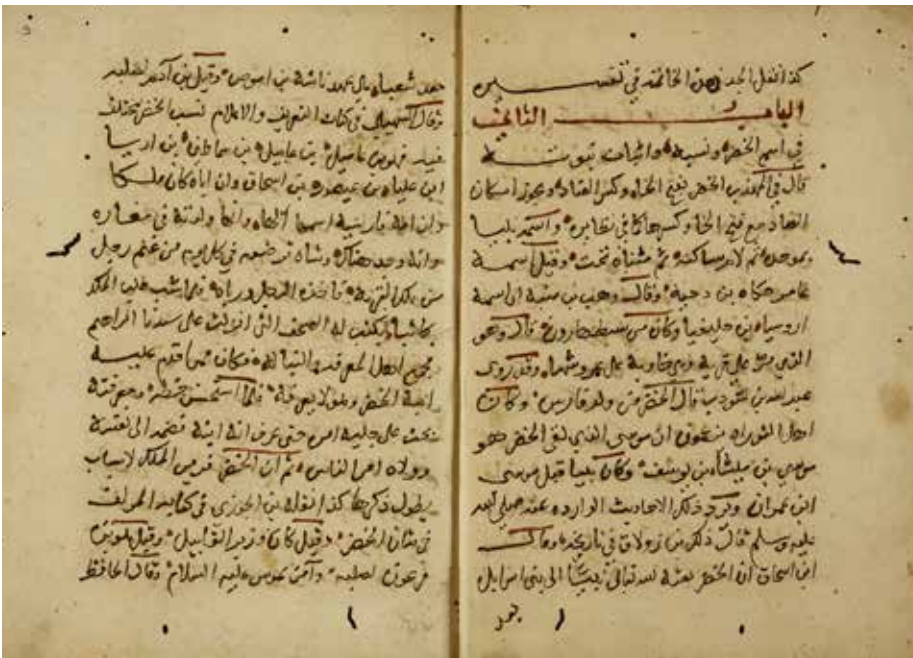 كذا نقل الجد في الخاتمة في تفسيره
الباب الثاني
في اسم الخضر ونسبه واثبات نبوته
قال في المهذب الخضر بفتح الخاء وكسر الضاد ويجوز اسكان
الضاد مع فتح الخاء وكسرها كما في نظايره واسمه بليا
بموحدة ثم لام ساكنه ثم مثناه تحت وقيل اسمه
عامر حكاه بن دحية وقال وهب بن منبه ان اسمه
ارومياه بن حليقيا وكان من سبط هارون قال وهو
الذي مر على قرية وهي خاوية على عروشها وقد روى
عبد الله بن شوذب قال الخضر من ولد فارس وكان
اهل التوراه يزعمون ان موسى الذي لقي الخضر هو
موسى بن ميشا بن يوسف وكان نبيا قبل موسى
ابن عمران ويرد ذلك الاحاديث الوارده عنه صلى الله
عليه وسلم قال ذلك بن زولاق في تاريخه وقال
ابن اسحاق ان الخضر بعثه الله تعالى نبيًا الى بني اسرايل
بعد
بعد شعياه بن اموص وقيل بن آدم لصلبه
وقال السهيلي في كتاب التعريف والاعلام نسب الخضر مختلف
فيه بن عاييل بن
ابن علياه بن عيصو بن اسحاق وان اباه كان ملكا
وان امه فارسية اسمها الهاء وانها ولدته في مغاره
وانه وجد هناك وشاه ترضعه في كل يوم من غنم رجل
من القرية فاخذه الرجل ورباه فلما شب طلب الملك
كاتبا يكتب له الصحف التي انزلت على سيدنا ابراهيم
فجمع اهل المعرفة والنباله وكان فيمن اقدم عليه
ابنه الخضر وهو لا يعرفه فلما استحسن خطه ومعرفته
بحث على جلية امره حتى عرف انه ابنه فضمه الى نفسه
وولاه امر الناس ثم ان الخضر فر من الملك لاسباب
يطول ذكرها كذا نقله بن الجوزي في كتابه المولف
في شان الخضر وقيل كان وقيل بن
فرعون لصلبه وآمن بموسى عليه السلام وقال الحافظ